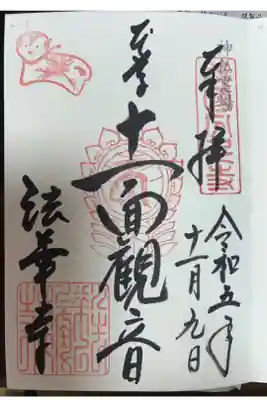 奉拝
神仏霊場
令和五年
十一月九日
本尊
十一面觀音
法華寺